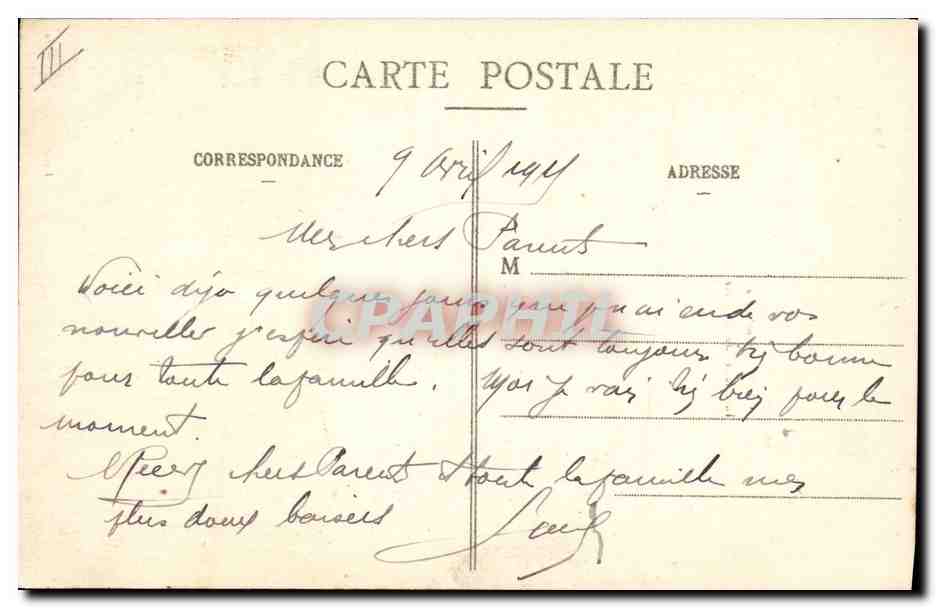 III
CARTE POSTALE
CORRESPONDANCE
9 Avril 1915
ADRESSE
Mes chers Parents
M
Voici déja quelques jours que je n'ai eu de vos
nouvelles j'espère qu'elles sont toujours très bonne
pour toute la famille. Moi je vais très bien pour le
moment.
Recevez chers Parents et toute la famille mes
plus doux baisers
CPAPHIL